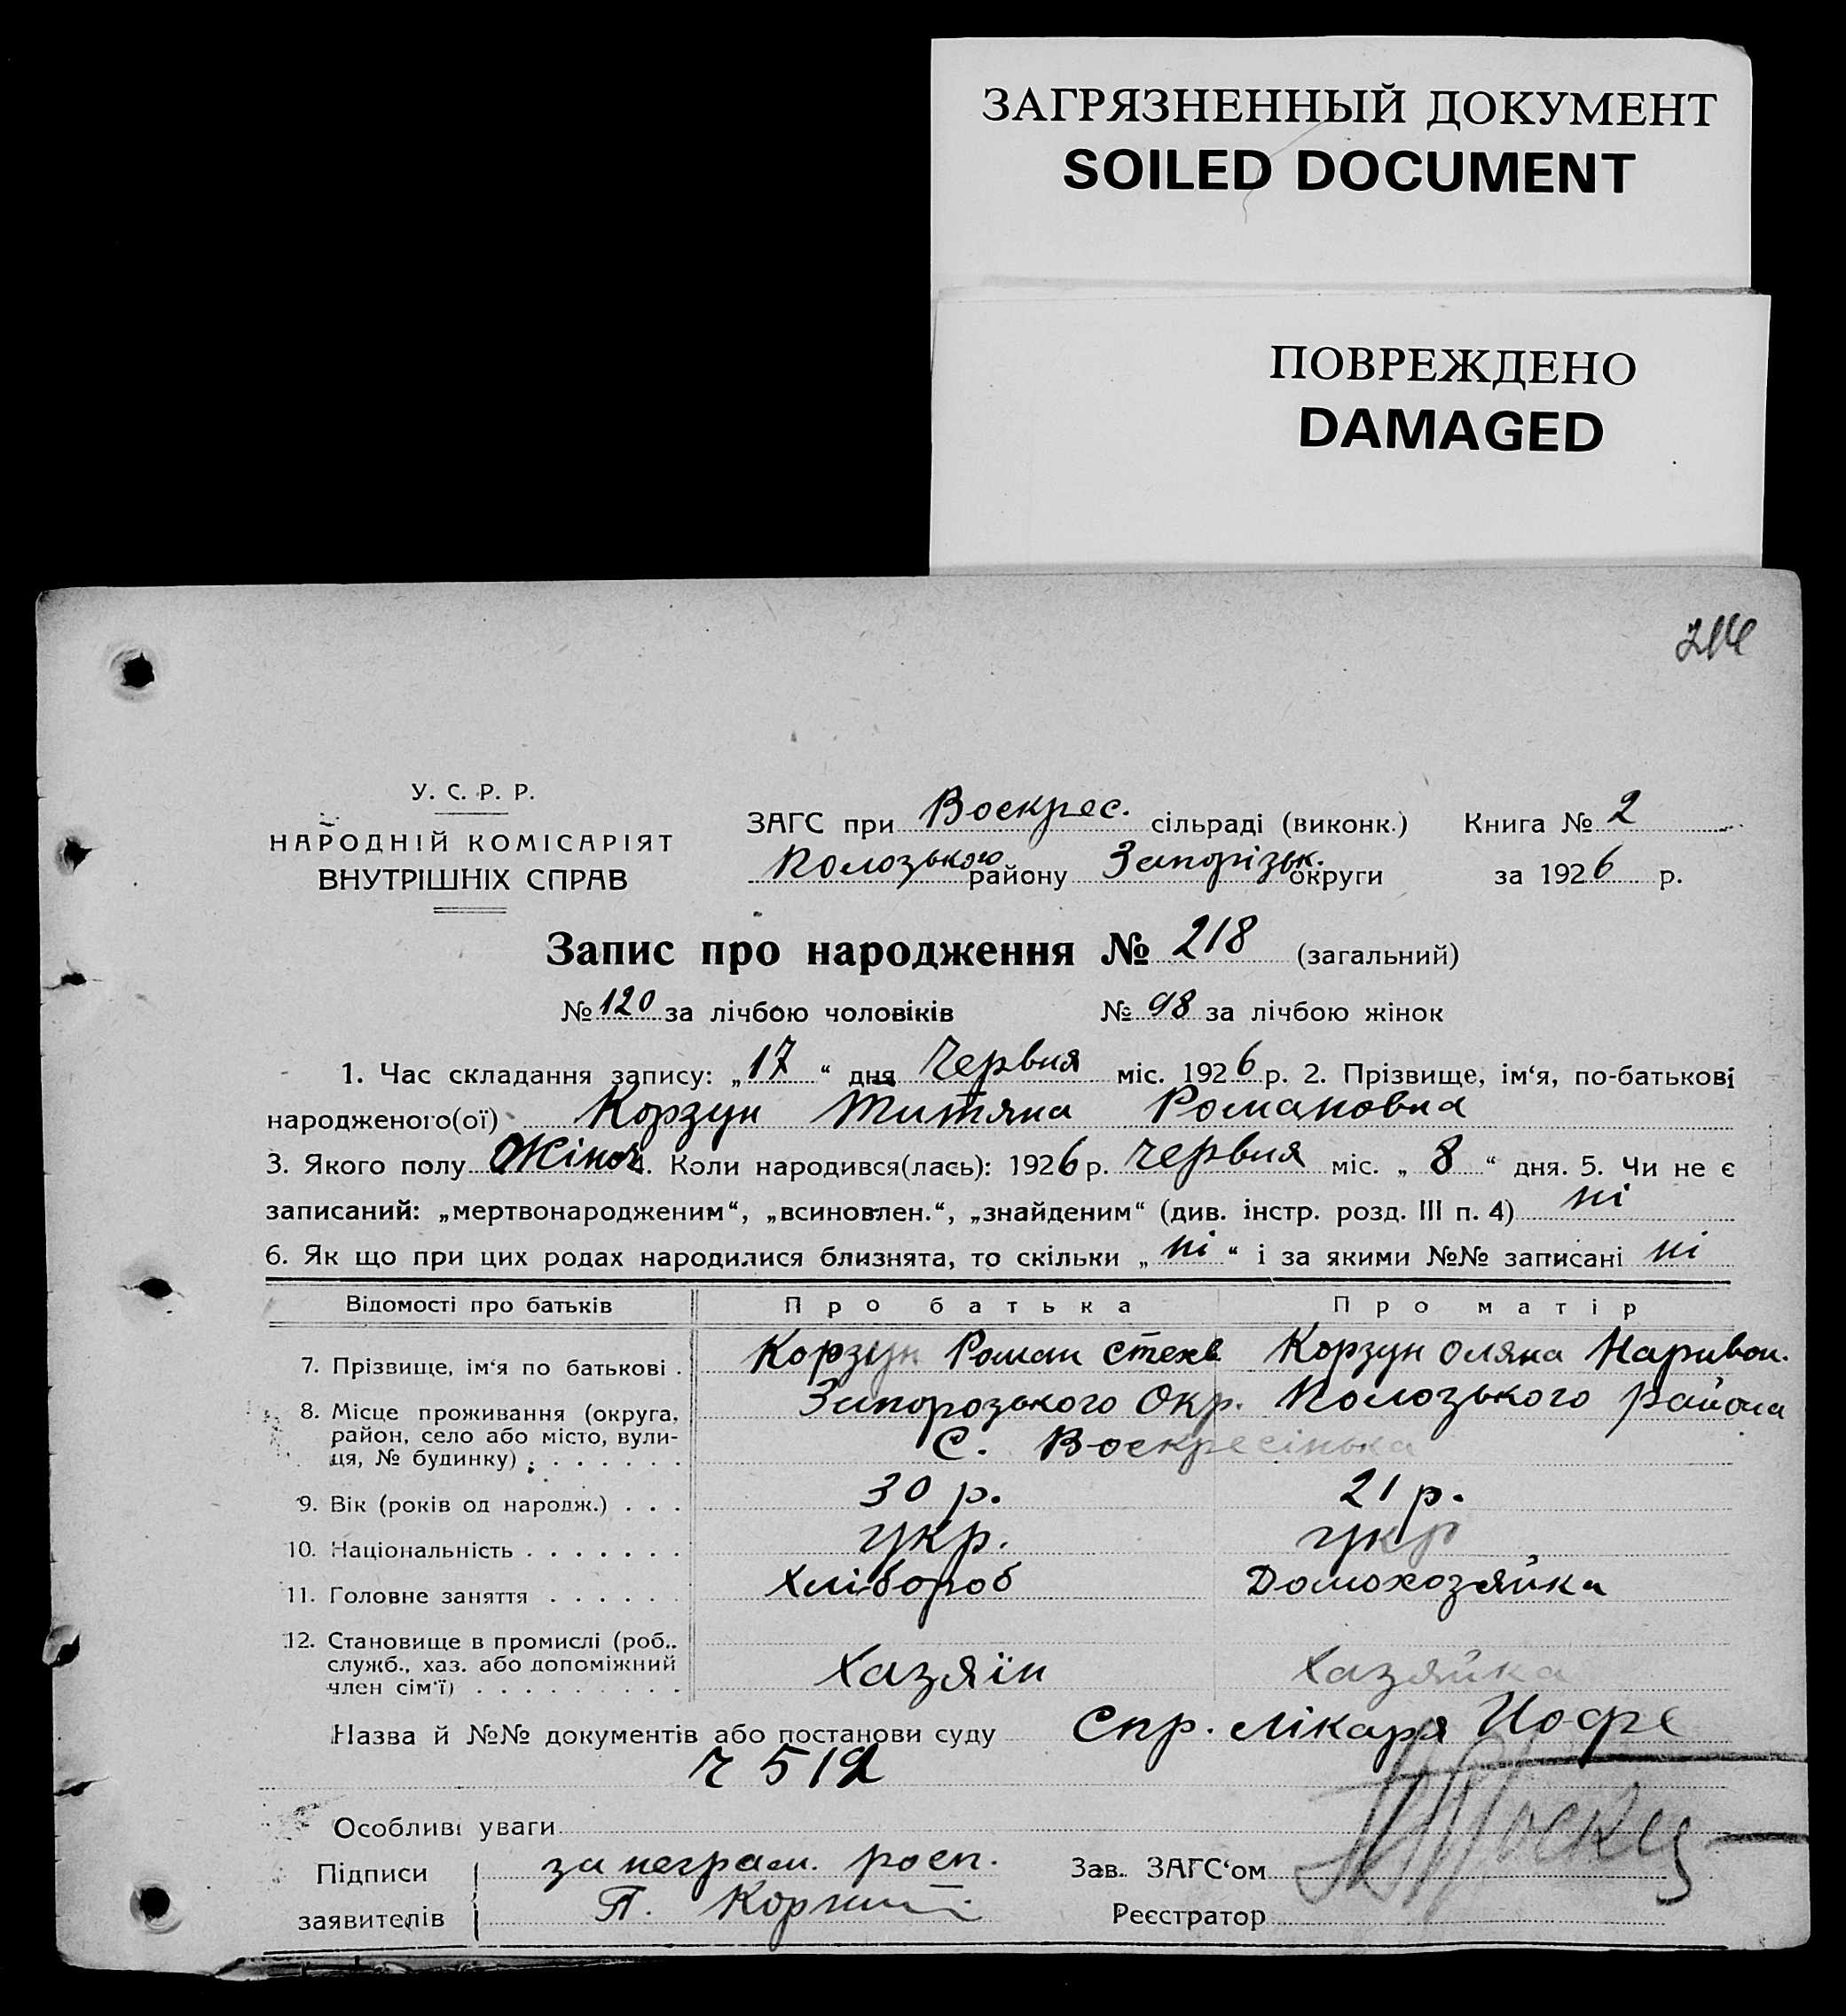 ЗАГРЯЗНЕННЫЙ ДОКУМЕНТ
SOILED DOCUMENT
ПОВРЕЖДЕНО
DAMAGED
У. С. Р. Р.
НАРОДНІЙ КОМІСАРІЯТ
ВНУТРІШНІХ СПРАВ
ЗАГС при Воскрес. сільраді (виконк.) Книга № 2
Пологзького району Запорізьк. округи за 1926 р.
Запис про народження № 218 (загальний)
№ 120 за лічбою чоловіків № 98 за лічбою жінок
1. Час складання запису: „17“ дня Червня міс. 1926 р. 2. Прізвище, ім‘я, по-батькові
народженого(ої) Корзун Титяна Романовна
3. Якого полу Жіноч. 4. Коли народився(лась): 1926 р. червня міс. „8“ дня. 5. Чи не є
записаний: „мертвонародженим“, „всиновлен.“, „знайденим“ (див. інстр. розд. III п. 4) ні
6. Як що при цих родах народилися близнята, то скільки „ні“ і за якими №№ записані ні
Відомості про батьків Про батька Про матір
7. Прізвище, ім‘я по батькові . Корзун Роман Корзун Оляна
8. Місце проживання (округа, район, село або місто, вулиця, № будинку) . Запорозького Окр. Пологзького района
С. Воскресінька
9. Вік (років од народж.) . . . 30 р. 21 р.
10. Національність . . . . . . . укр. укр
11. Головне заняття . . . . . . Хлібороб Домохозяйка
12. Становище в промислі (роб., служб., хаз. або допоміжний член сім‘ї) . . . . . . . . . Хазяїн Хазяйка
Назва й №№ документів або постанови суду Спр. лікаря Иофе
ч 512
Особливі уваги
Підписи заявителів за неграм. росп.
П.
Зав. ЗАГС‘ом
Реєстратор